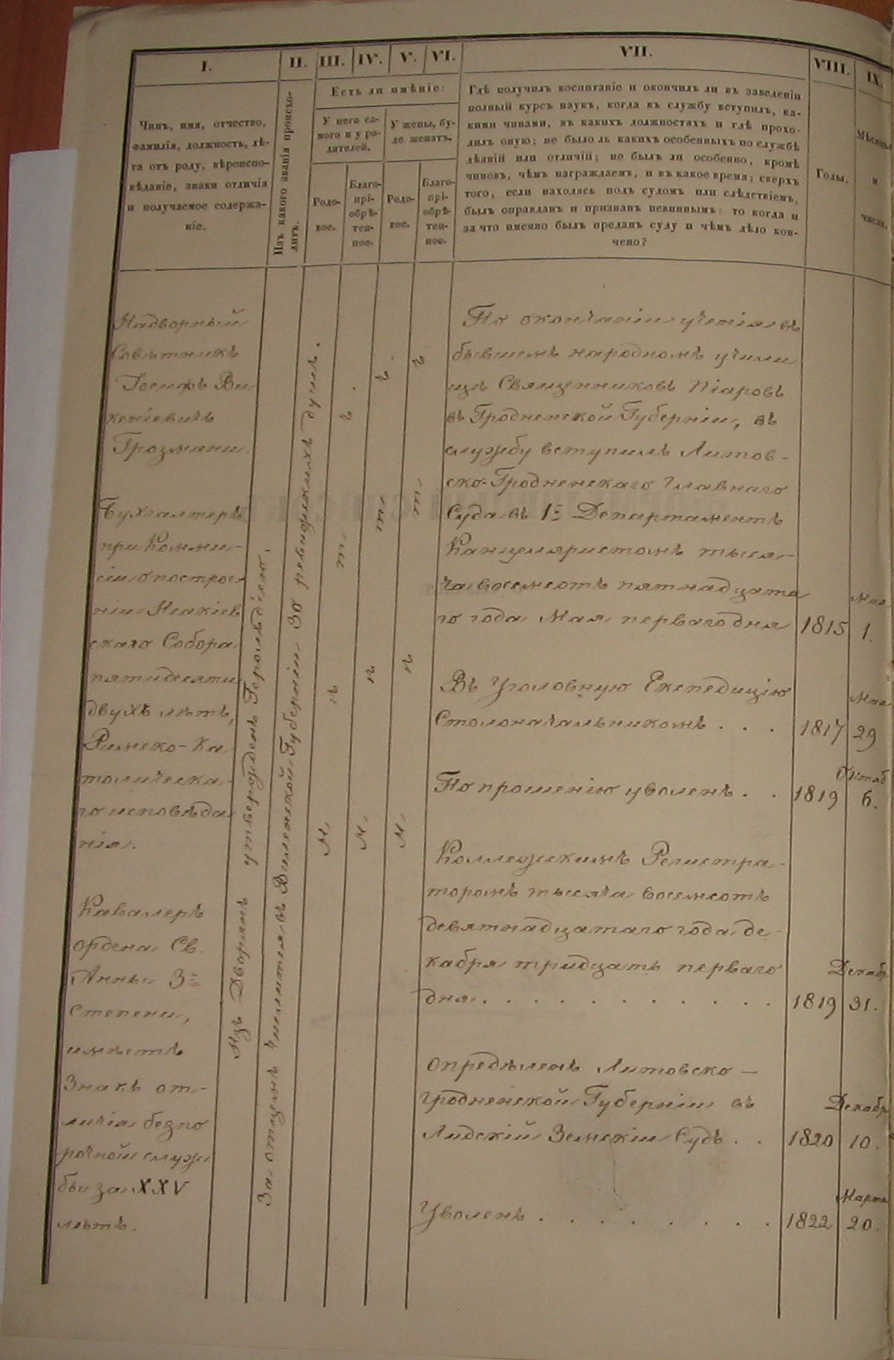 I.
II.
III.
IV.
V.
VI.
VII.
VIII.
IX.
Чинъ, имя, отчество,
фамилія, должность, лѣ-
та отъ роду, вѣроиспо-
вѣданіе, знаки отличія
и получаемое содержа-
ніе.
Изъ какого званія происхо-
дитъ.
Есть ли имѣніе:
У него са-
мого и у ро-
дителей.
У жены, бу-
де женатъ.
Родо-
вое.
Благо-
прі-
обрѣ-
тен-
ное.
Родо-
вое.
Благо-
прі-
обрѣ-
тен-
ное.
Гдѣ получилъ воспитаніе и окончилъ ли въ заведеніи
полный курсъ наукъ, когда въ службу вступилъ, ка-
кими чинами, въ какихъ должностяхъ и гдѣ прохо-
дилъ оную; не было ль какихъ особенныхъ по службѣ
дѣяній или отличій; не былъ ли особенно, кромѣ
чиновъ, чѣмъ награждаемъ, и въ какое время; сверхъ
того, если находясь подъ судомъ или слѣдствіемъ,
былъ оправданъ и признанъ невиннымъ: то когда и
за что именно былъ преданъ суду и чѣмъ дѣло кон-
чено?
Годы.
и
числа.
Надворный
Совѣтникъ
Іосифъ Ви
кентіевичъ
Грозмани.
Бухгалтеръ
при Комми-
сіи о построе
ніи Исакіев
скаго Собора
пятидесяти
двухъ лѣтъ,
Римско-Ка
толическа-
го исповѣда
нія.
Кавалеръ
ордена Св.
Анны 3й
степени,
имѣетъ
Знакъ от-
личія безпо
рочной служ
бы за XXV
лѣтъ.
Изъ Дворянъ утвержденъ Герольдіею.
За отцемъ числится въ Виленской Губерніи 30 ревизскихъ душъ.
Нѣтъ
Нѣтъ
Нѣтъ
По окончаніи ученія въ
бывшемъ народномъ учили
щѣ Священниковъ Піаровъ
въ Гродненской Губерніи, въ
службу вступилъ Литов-
ско-Гродненскаго Главнаго
Суда въ 1й Департаментъ
Канцеляристомъ тыся-
ча восемьсотъ пятнадцата
го года Мая перваго дня 1815 Мая 1.
Въ Уголовную Експедицію
Столоначальникомъ . . . 1817 29
По прошенію уволенъ . . 1819 Октяб 6.
Коллежскимъ Регистра-
торомъ тысяча восемьсотъ
девятнадцатаго года де-
кабря тридцать перваго
дня . . . . . . . . . . 1819 Декабр 31.
Опредѣленъ Литовско-
Гродненской Губерніи въ
Лидскій Земскій Судъ . . 1820 Декабр 10.
Уволенъ . . . . . . . . 1822 Марта 20.